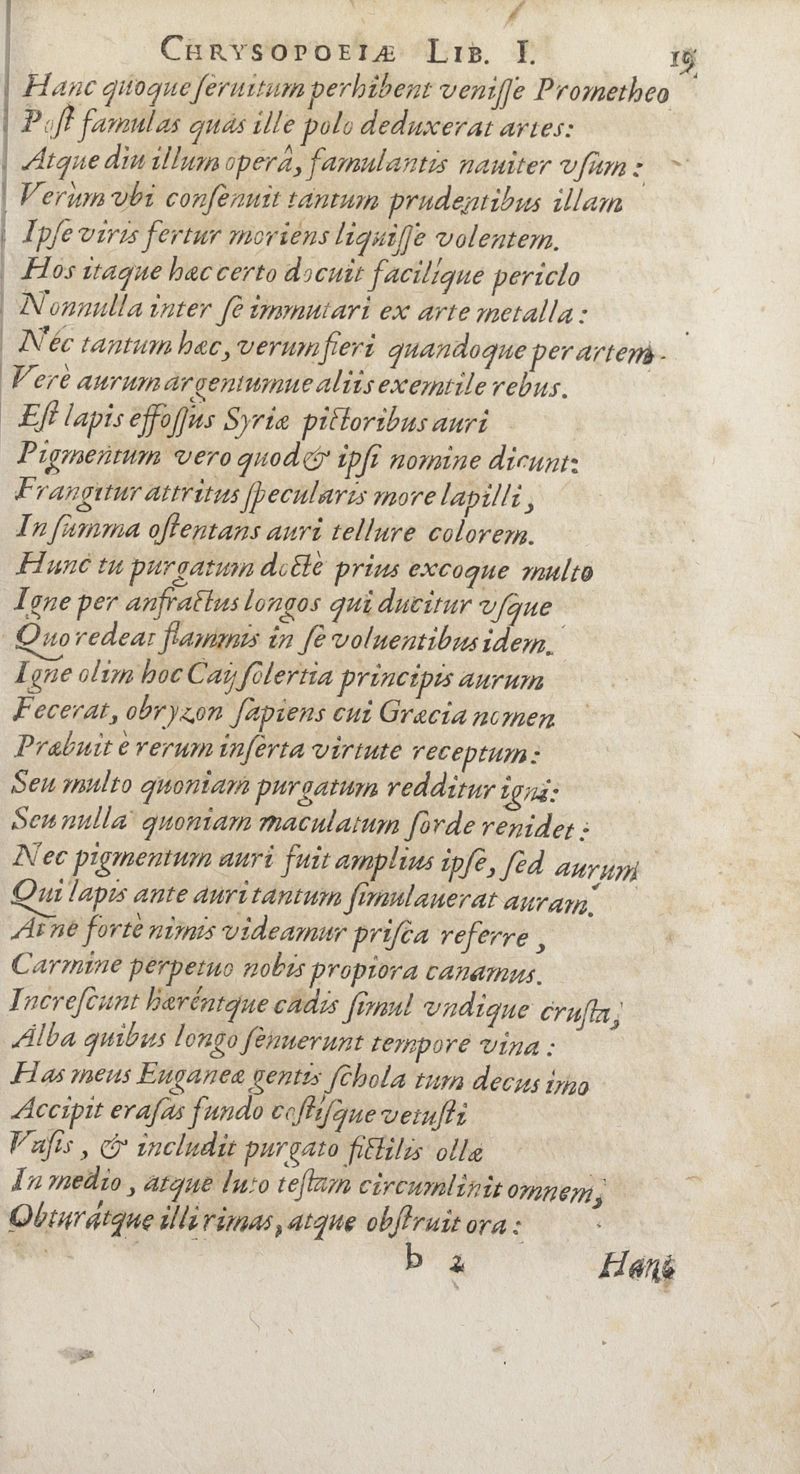 CHRYSOPOEIÆ LIB. I. 19
Hanc quoque ſeruitum perhibent veniſſe Prometheo
Poſt famulas quas ille polo deduxerat artes:
Atque diu illum operâ, famulantis nauiter vſum:
Verùm vbi conſenuit tantum prudentibus illam
Ipſe viris fertur moriens liquiſſe volentem.
Hos itaque hæc certo docuit facilíque periclo
Nonnulla inter ſe immutari ex arte metalla:
Nec tantum hæc, verum fieri quandoque per artem
Verè aurum argentumue aliis exemtile rebus.
Eſt lapis effoſſus Syriæ pictoribus auri
Pigmentum vero quod & ipſi nomine dicunt:
Frangitur attritus ſpecularis more lapilli,
In ſumma oſtentans auri tellure colorem.
Hunc tu purgatum doctè prius excoque multo
Igne per anfractus longos qui ducitur vſque
Quo redeat flammis in ſe voluentibus idem.
Igne olim hoc Caij ſolertia principis aurum
Fecerat, obryzon ſapiens cui Græcia nomen
Præbuit è rerum inſerta virtute receptum:
Seu multo quoniam purgatum redditur igni:
Seu nulla quoniam maculatum ſorde renidet:
Nec pigmentum auri fuit amplius ipſe, ſed aurum
Qui lapis ante auri tantum ſimulauerat auram.
At ne fortè nimis videamur priſca referre,
Carmine perpetuo nobis propiora canamus.
Increſcunt hærêntque cadis ſimul vndique cruſtæ,
Alba quibus longo ſenuerunt tempore vina:
Has meus Euganeæ gentis ſchola tum decus imo
Accipit eraſas fundo coſtiſque vetuſti
Vaſis, & includit purgato fictilis ollæ
In medio, atque luto teſtam circumlinit omnem,
Obturátque illi rimas, atque obſtruit ora:
b 2 Hanc